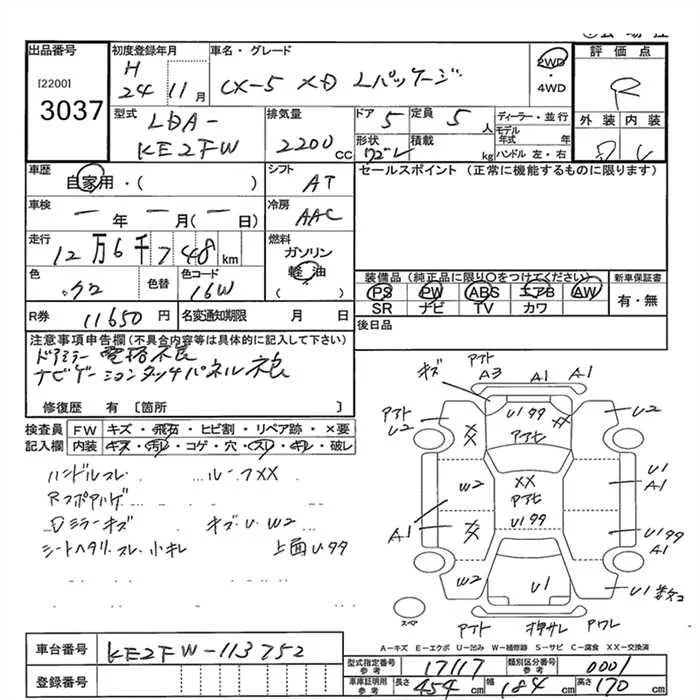 出品番号
[2200]
3037
初度登録年月
H
24 11月
車名・グレード
CX-5 XD Lパッケージ
2WD
・
4WD
評価点
R
外装 内装
D
型式
LDA-
KE2FW
排気量
2200 CC
ドア 5
定員 5 人
形状
ワゴン
積載
kg
ディーラー・並行
モデル年式 年
ハンドル 左・右
車歴
自家用・( )
シフト
AT
セールスポイント (正常に機能するものに限ります)
車検
ー年ー月(ー日)
冷房
AAC
走行
12万6千748km
燃料
ガソリン
軽油
色
クロ
色替
色コード
16W
装備品 (純正品に限り○をつけてください)
PS PW ABS エアB AW
SR ナビ TV カワ
新車保証書
有・無
R券 11650円
名変通知期限 月 日
後日品
注意事項申告欄(不具合内容等は具体的に記入して下さい)
ドアミラー電格不良
ナビゲーションタッチパネル不良
修復歴 有〔箇所 〕
検査員
記入欄
FW キズ・飛石・ヒビ割・リペア跡・×要
内装 キズ・汚れ・コゲ・穴・スレ・キレ・破レ
ハンドルスレ ルーフXX
Rフロアハゲ
Dミラーキズ キズU W2
シートヘタリ.スレ.小キレ 上面Uララ
キズ
アオト
A3 A1 A1
アオト
U2
U1ララ
XX
アワヒ
U2
XX
W2
XX
アワヒ
U1
A1
A1
XX
U1ララ
U1ララ
A1
W2
U1
U1
スペア
アオト 押サレ アワレ
A-キズ E-エクボ U-凹み W-補修跡 S-サビ C-腐食 XX-交換済
車台番号 KE2FW-113752
登録番号
型式指定番号
参考
17117
類別区分番号
参考
0001
車庫証明用
参考
長さ 454cm 幅 184cm 高さ 170cm